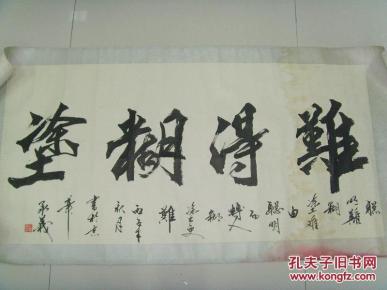 難得糊塗
聰明難糊塗難由聰明而轉入糊塗更難
秋月書於京
孔夫子旧书网
KONGFZ.COM